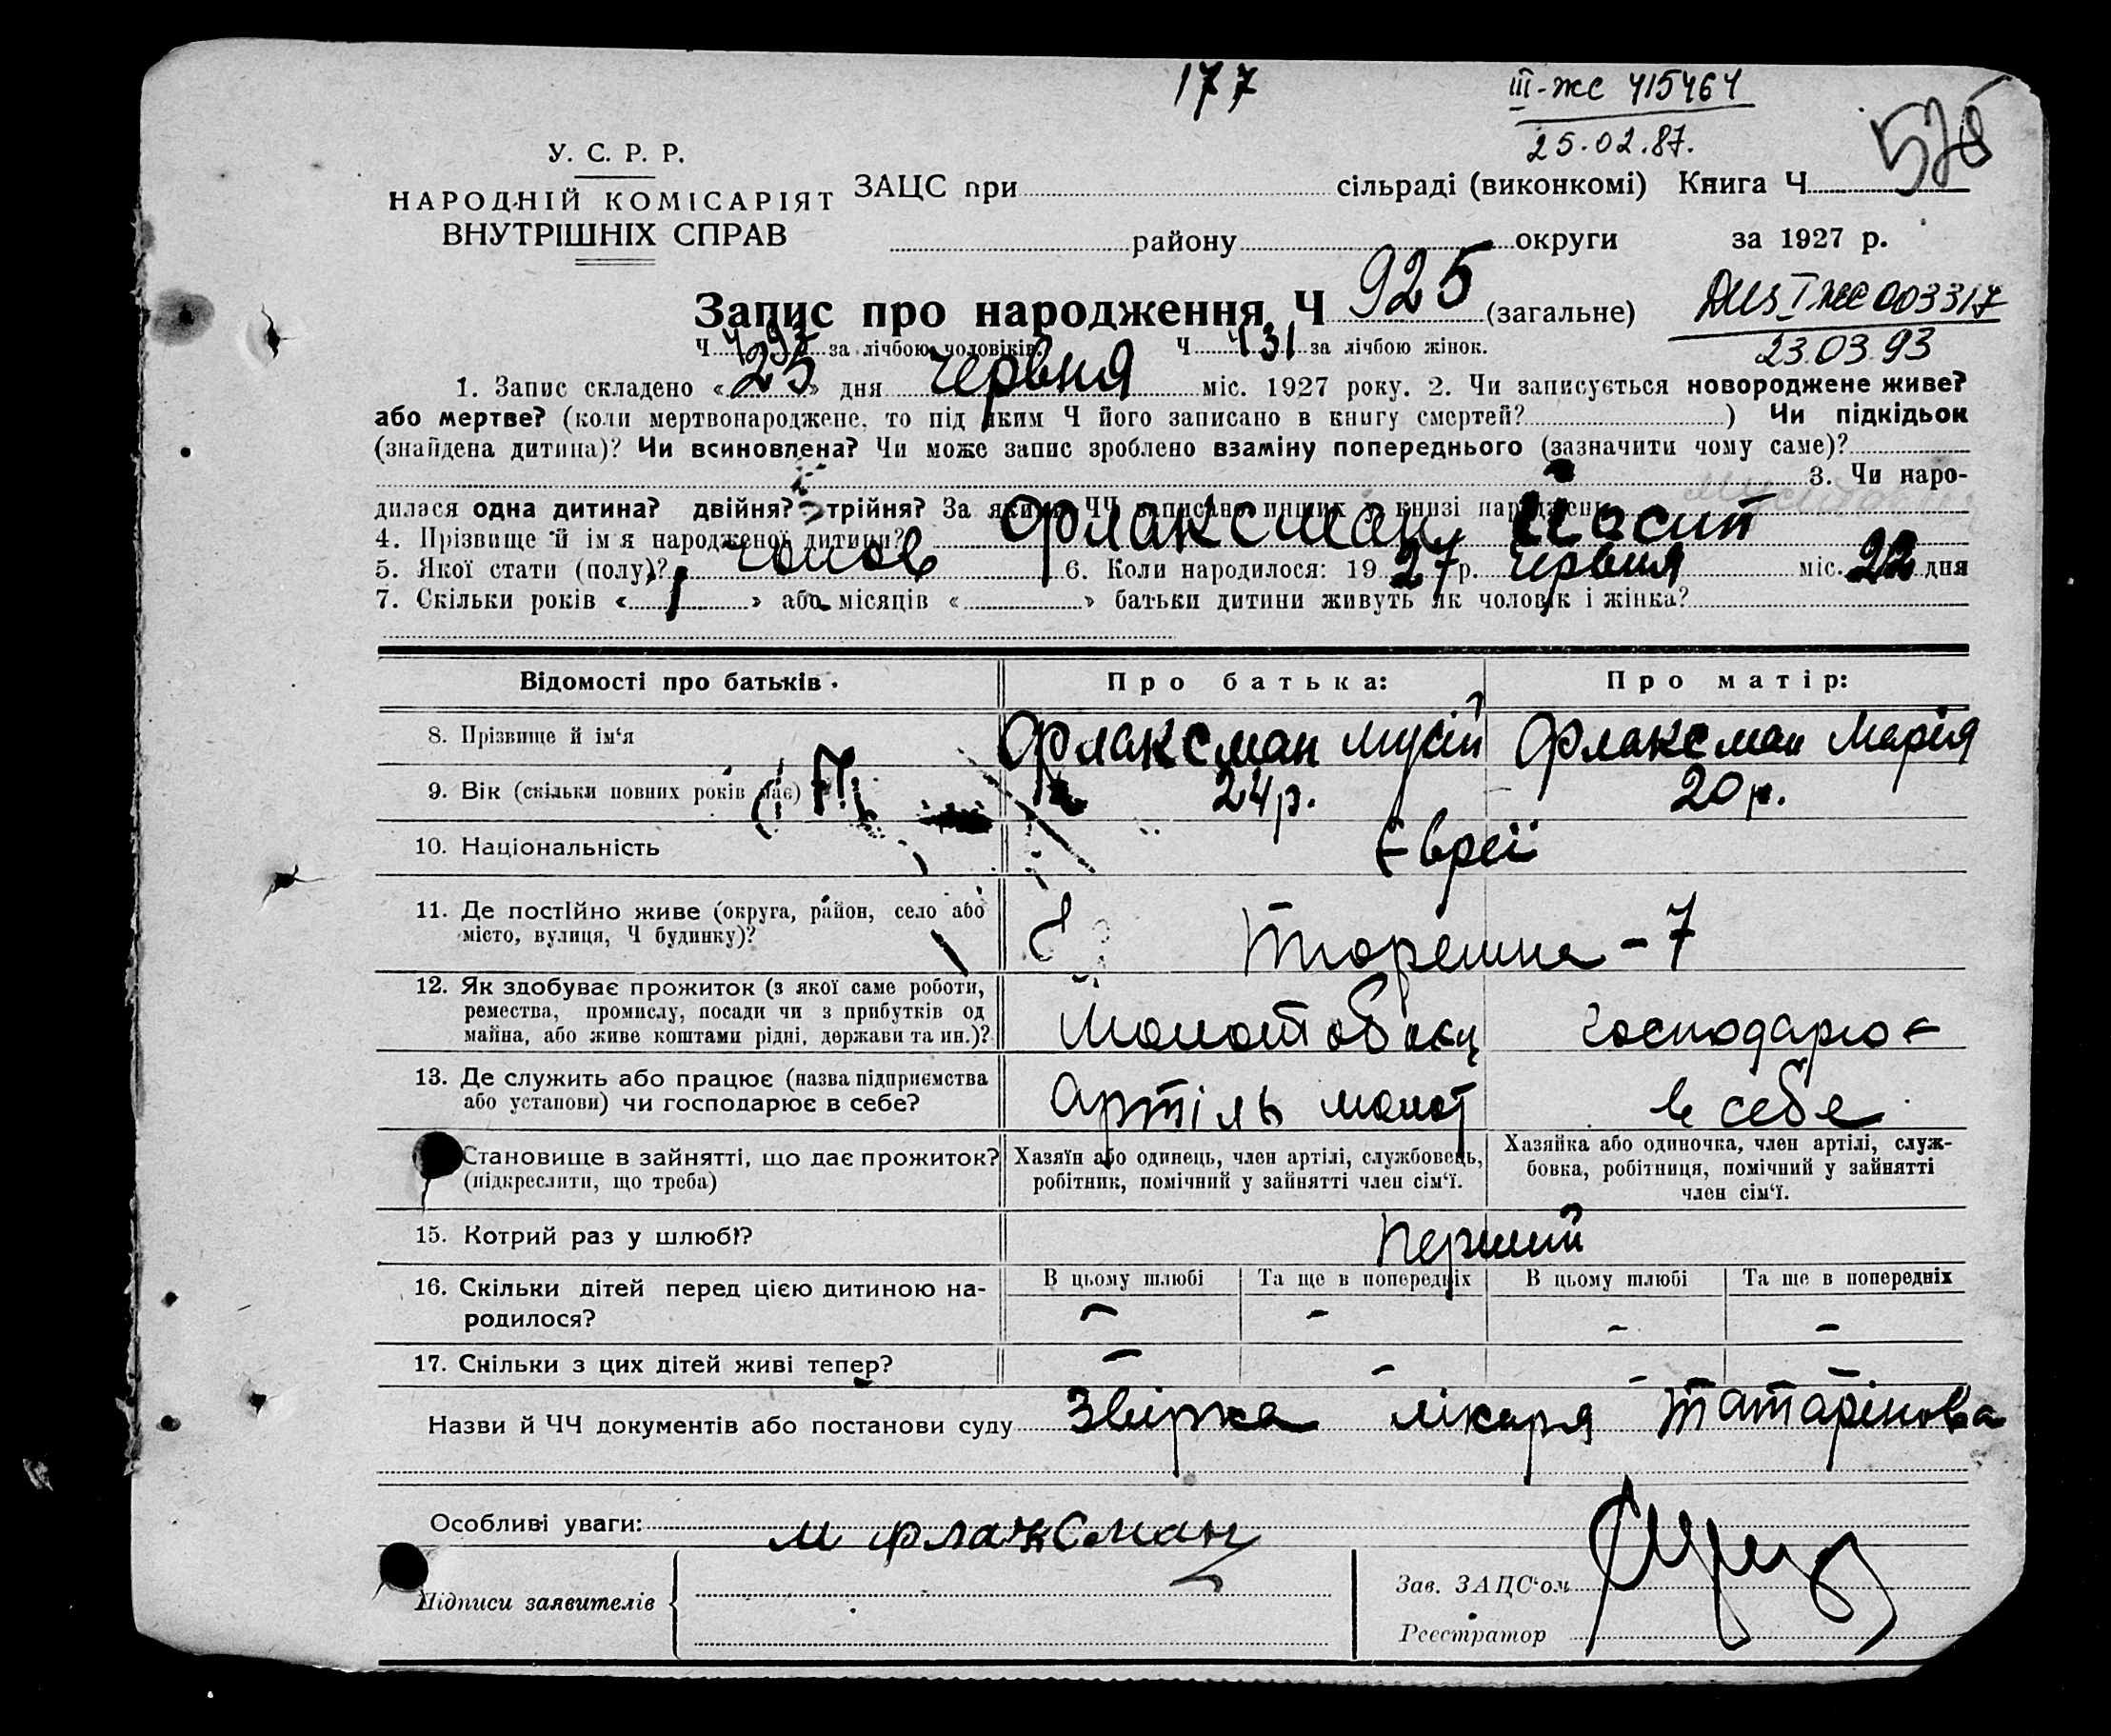 177
III-ЖС 415464
25.02.87.
У. С. Р. Р.
НАРОДНІЙ КОМІСАРІЯТ
ВНУТРІШНІХ СПРАВ
ЗАЦС при сільраді (виконкомі) Книга Ч
району округи за 1927 р.
Запис про народження Ч 925 (загальне)
003317
23.03.93
Ч за лічбою чоловіків. Ч 431 за лічбою жінок.
1. Запис складено «25» дня червня міс. 1927 року. 2. Чи записується новороджене живе?
або мертве? (коли мертвонароджене, то під яким Ч його записано в книгу смертей? ) Чи підкідьок
(знайдена дитина)? Чи всиновлена? Чи може запис зроблено взаміну попереднього (зазначити чому саме)?
3. Чи наро-
дилася одна дитина? двійня? трійня? За якими ЧЧ записано инших у книзі народжень
4. Прізвище й ім'я народженої дитини? Флаксман Йосип
5. Якої стати (полу)? чолов 6. Коли народилося: 1927 р. червня міс. 22 дня
7. Скільки років « » або місяців « » батьки дитини живуть як чоловік і жінка?
Відомості про батьків Про батька: Про матір:
8. Прізвище й ім'я Флаксман Мусій Флаксман Марія
9. Вік (скільки повних років має) 24 р. 20 р.
10. Національність Євреї
11. Де постійно живе (округа, район, село або
місто, вулиця, Ч будинку)? - 7
12. Як здобуває прожиток (з якої саме роботи,
ремества, промислу, посади чи з прибутків од
майна, або живе коштами рідні, держави та ин.)? Молотобоєц господарює
13. Де служить або працює (назва підприємства
або установи) чи господарює в себе? Артіль молот в себе
Становище в зайнятті, що дає прожиток?
(підкреслити, що треба)
Хазяїн або одинець, член артілі, службовець,
робітник, помічний у зайнятті член сім'ї.
Хазяйка або одиночка, член артілі, служ-
бовка, робітниця, помічний у зайнятті
член сім'ї.
15. Котрий раз у шлюбі? Перший
16. Скільки дітей перед цією дитиною на-
родилося?
В цьому шлюбі Та ще в попередніх В цьому шлюбі Та ще в попередніх
- - - -
17. Скільки з цих дітей живі тепер? - - - -
Назви й ЧЧ документів або постанови суду Звірка лікаря Татарінова
Особливі уваги: М Флаксман
Підписи заявителів
Зав. ЗАЦС'ом
Реєстратор